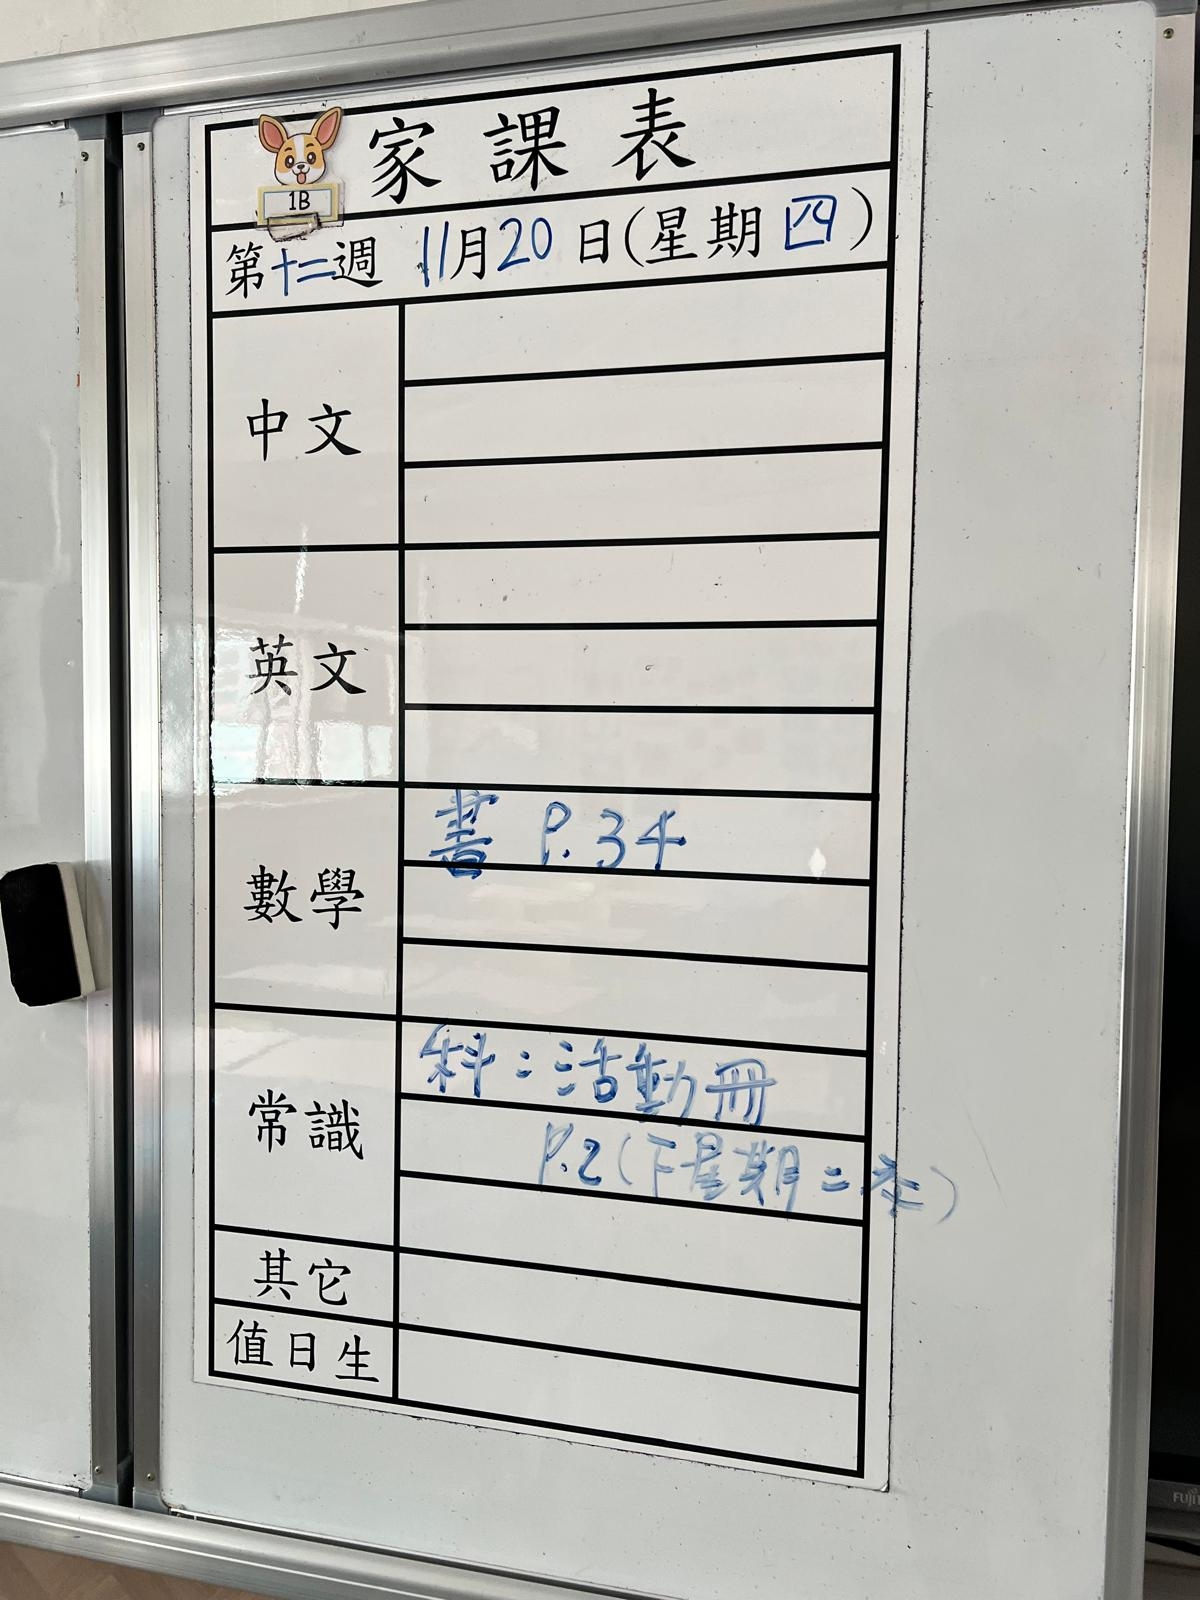 家課表
1B
第十二週 11月20日(星期四)
中文
英文
數學
書 P.34
常識
科:活動冊
P.2(下星期二交)
其它
值日生